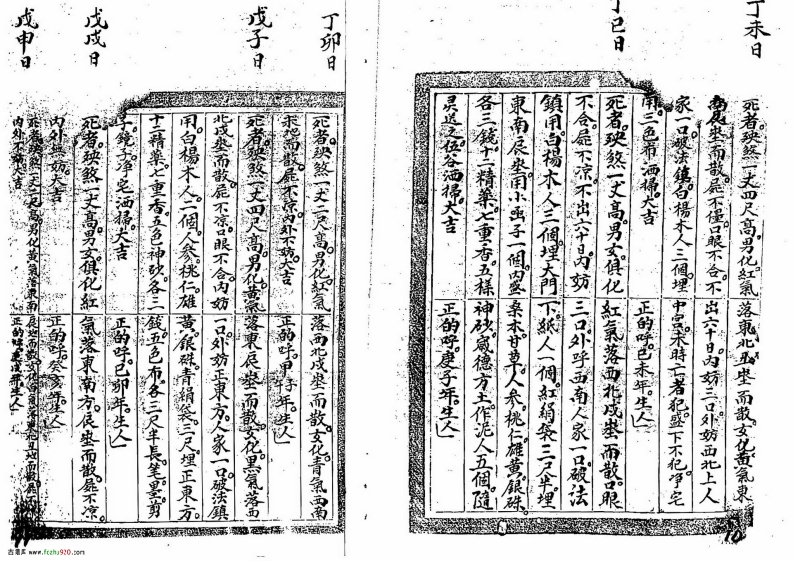 丁未日
死者殃煞一丈四尺高男化紅氣落東北丑坐而散女化黃氣東
南辰坐而散屍不僵口眼不合不出六十日內妨三口外妨西北上人
家一口破法鎮白楊木人三個埋中宮未時亡者犯盛下不犯淨宅
用三色布洒掃大吉 正的呼己未年生人
丁巳日
死者殃煞一丈四尺高男女俱化紅氣落西北戌坐而散口眼
不合屍不凉不出六十日內妨三口外呼西南人家一口破法
鎮用白楊木人三個埋大門下紙人一個紅絹袋三尺半埋
東南辰坐用小函子一個內盛桑木甘草人參桃仁雄黃銀硃
各三錢十二精藥七重香五樣神砂威德方土作泥人五個隨
灵送之伍谷洒掃大吉 正的呼庚子年生人
10
丁卯日
死者殃煞一丈二尺高男化紅氣落西北戌坐而散女化青氣西南
未地而散屍不凉內外不妨大吉 正的呼甲子年生人
戊子日
死者殃煞一丈四尺高男化黃氣落東辰坐而散女化黑氣落西
北戌坐而散屍不凉口眼不合內妨一口外妨正東方人家一口破法鎮
用白楊木人二個人參桃仁雄黃銀硃青絹袋三尺埋正東方
十二精藥七重香五色神砂各三錢五色布各三尺半長筆墨剪
子鏡子淨宅洒掃大吉 正的呼己卯年生人
戊戌日
死者殃煞一丈高男女俱化紅氣落東南方辰坐而散屍不凉
內外無妨大吉 正的呼癸亥年生人
戊申日
死者殃煞一丈二尺高男化黃氣落東南辰地而散女化
內外不妨大吉 正的呼 年生人
古易库 www.fczhu920.com